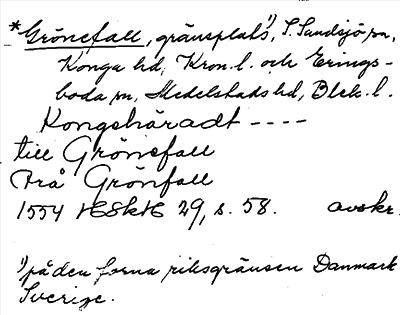 *Grönefall, gränsplats¹), S. Sandsjö sn,
Konga hd, Kron. l. och Erings-
boda sn, Medelstads hd, Blek. l.
Kongshäradt ----
till Grönefall
Frå Grönfall
1554 HSkH 29, s. 58. avskr.
¹) på den forna riksgränsen Danmark
Sverige.